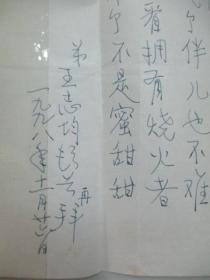 了伴儿也不难
看拥有烧火者
了不是蜜甜甜
弟王志均
再拜
一九九八年十一月廿六日